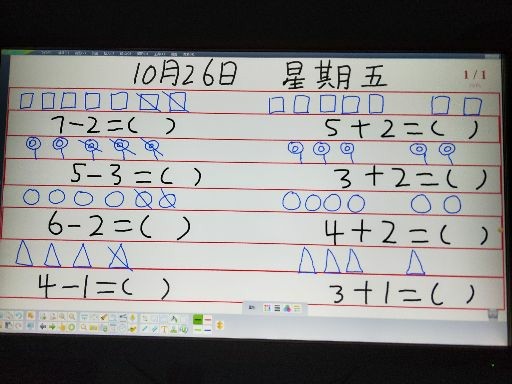 10月26日 星期五
1/1
7-2=( ) 5+2=( )
5-3=( ) 3+2=( )
6-2=( ) 4+2=( )
4-1=( ) 3+1=( )